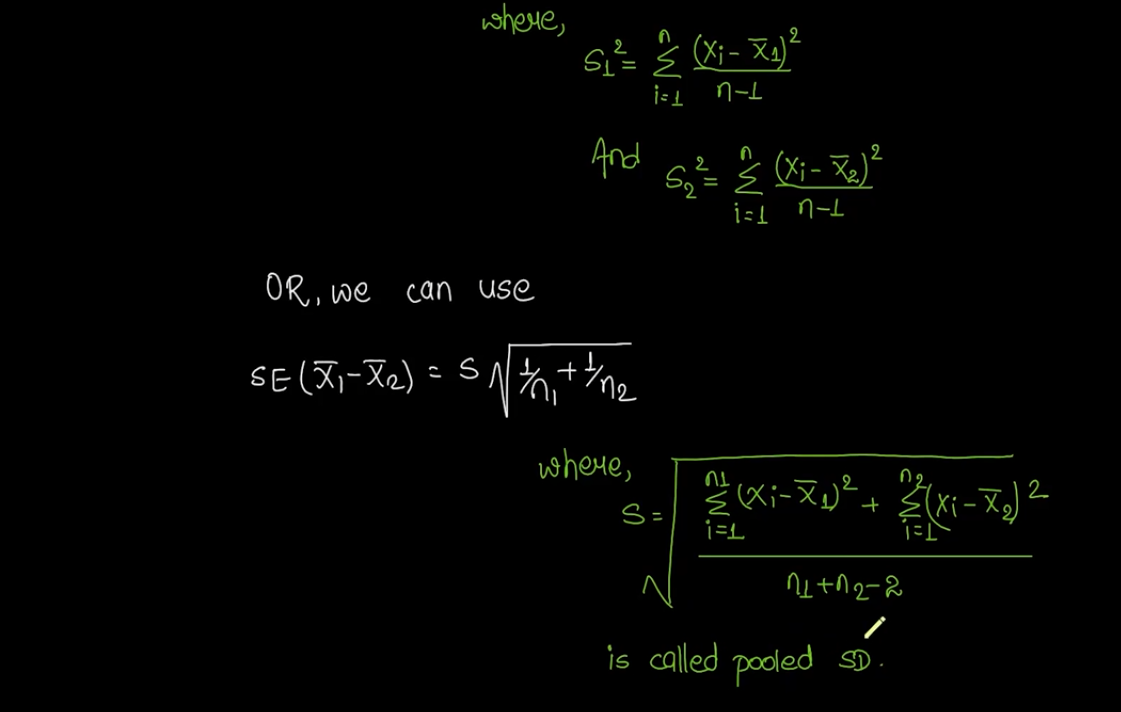 where,
S₁² = Σᵢ₌₁ⁿ (Xᵢ - X̅₁)² / n-1
And S₂² = Σᵢ₌₁ⁿ (Xᵢ - X̅₂)² / n-1
OR, we can use
SE(X̅₁ - X̅₂) = S √(1/n₁ + 1/n₂)
where,
S = √((Σᵢ₌₁ⁿ¹ (Xᵢ - X̅₁)² + Σᵢ₌₁ⁿ² (Xᵢ - X̅₂)²) / n₁+n₂-2)
is called pooled SD.